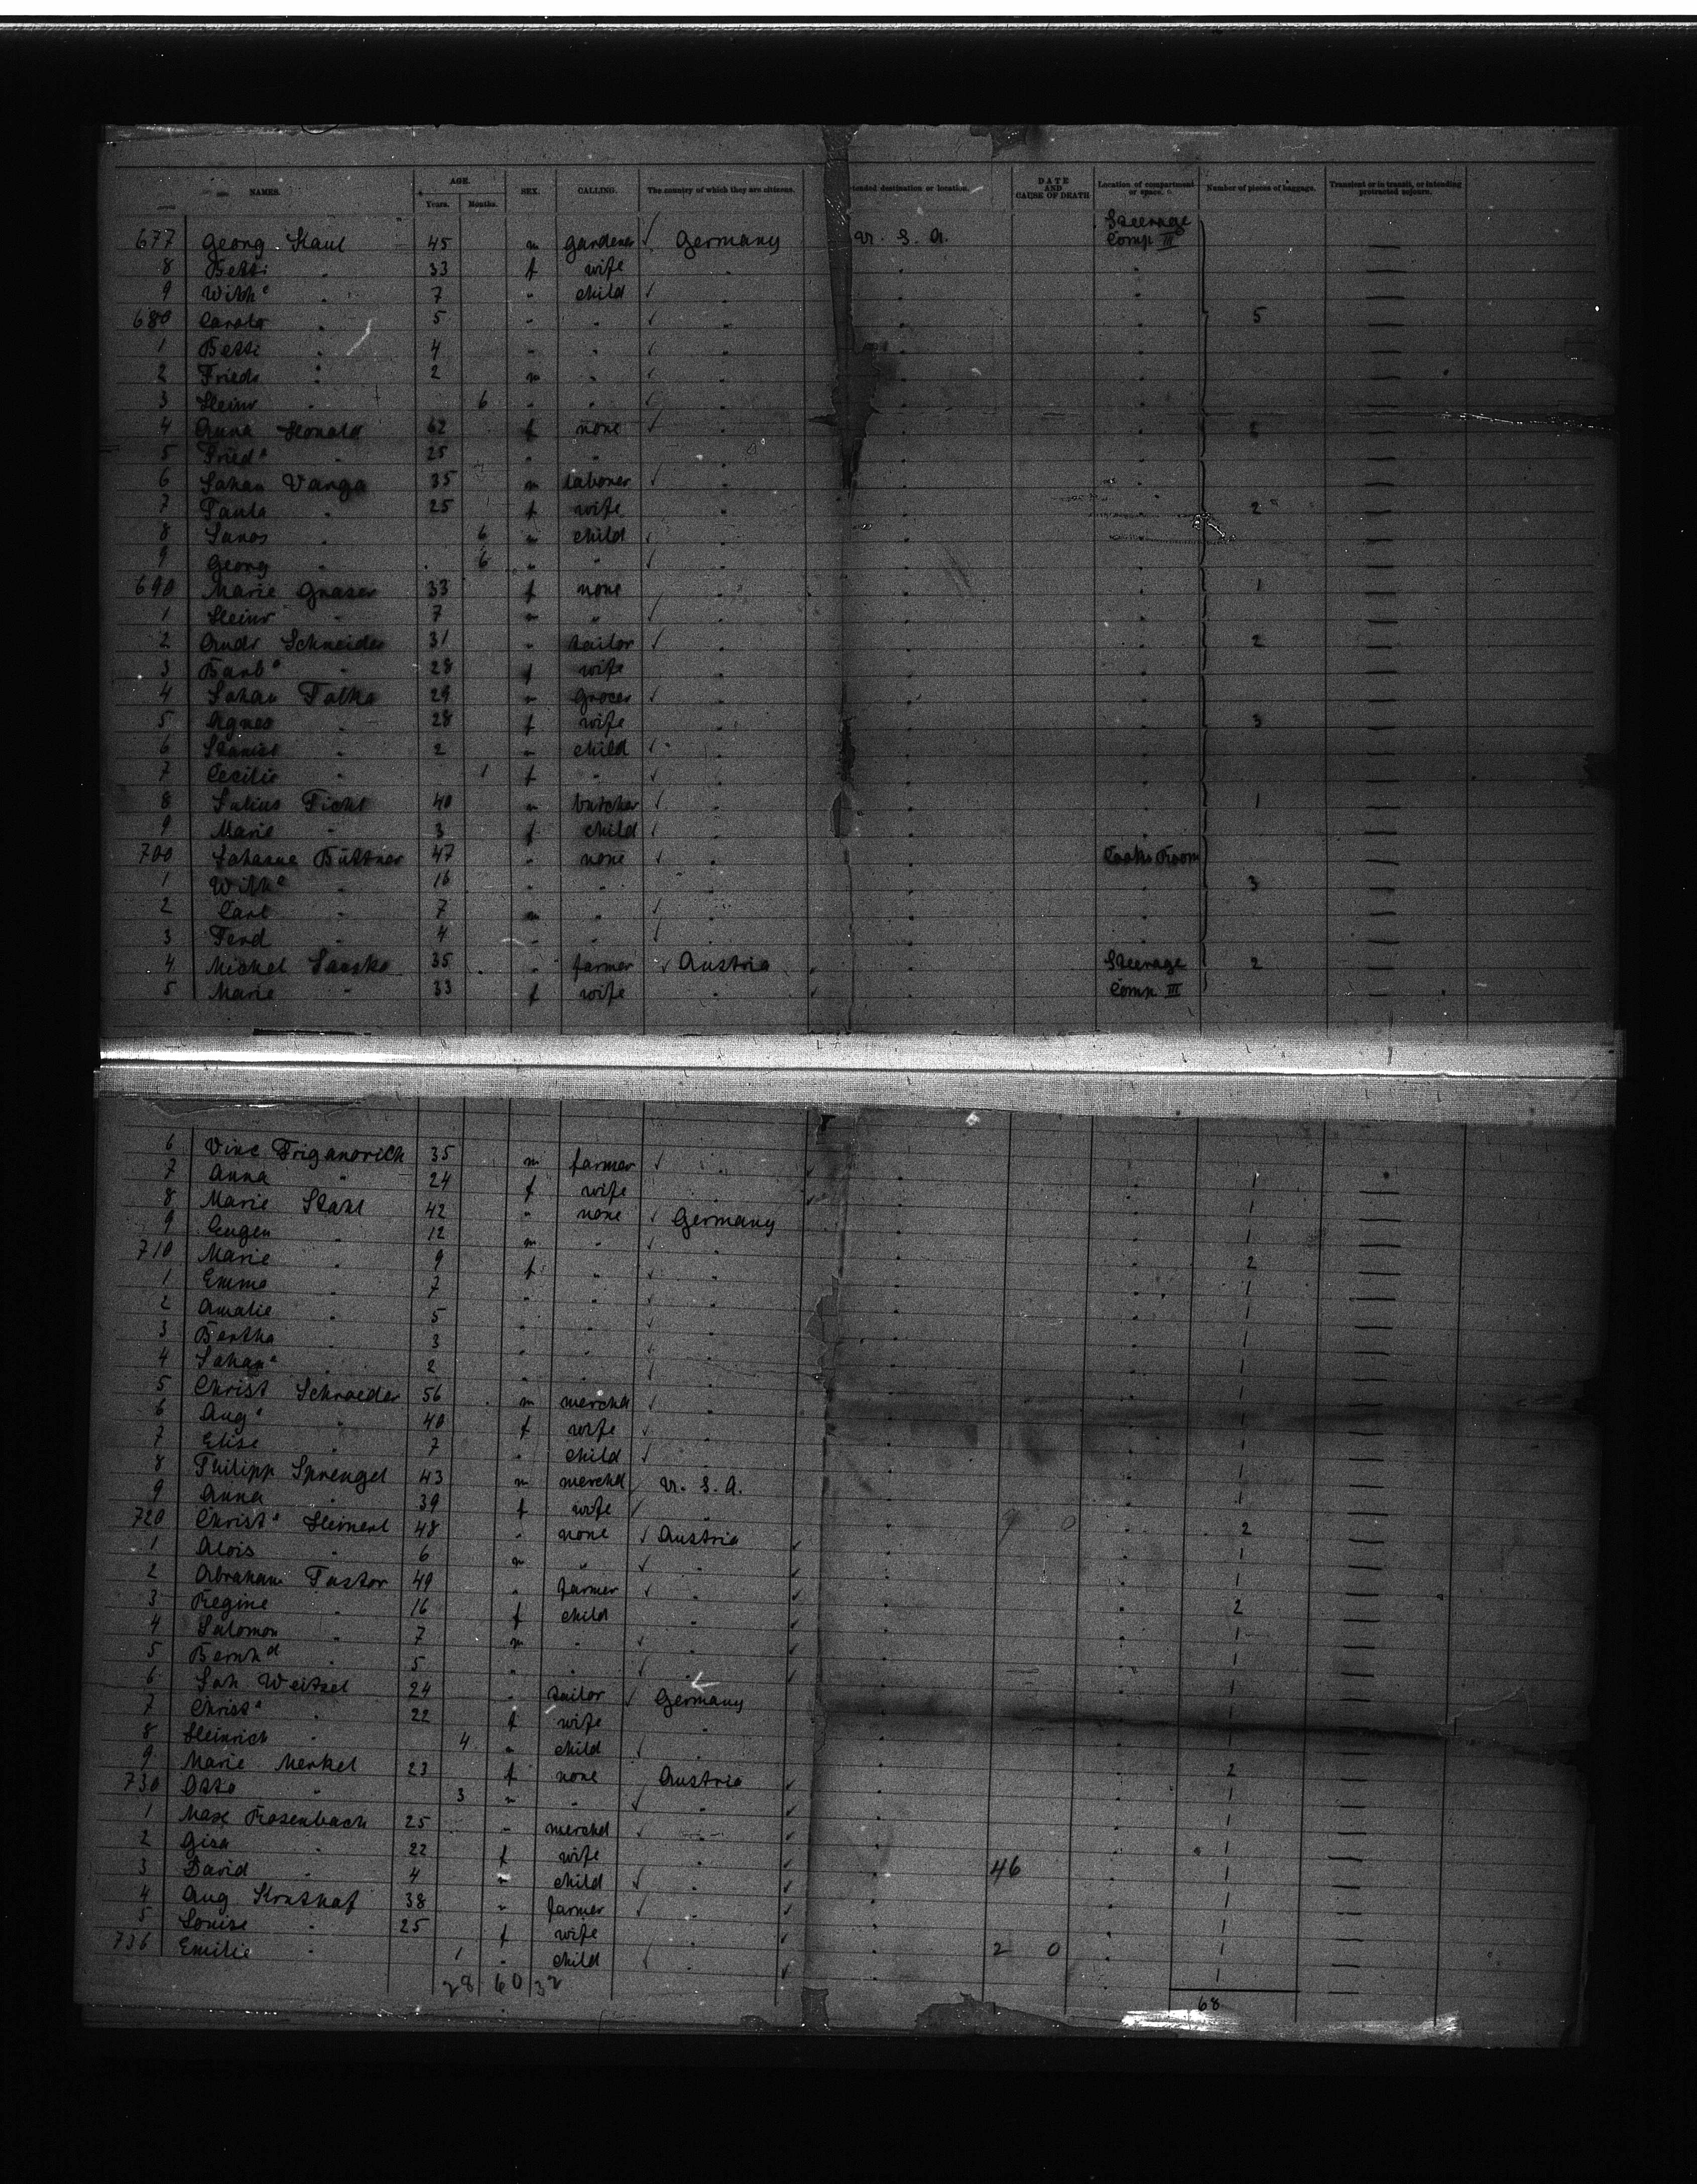 NAMES. AGE. Years. Months. SEX. CALLING. The country of which they are citizens. tended destination or location. DATE AND CAUSE OF DEATH Location of compartment or space. Number of pieces of baggage. Transient or in transit, or intending protracted sojourn.
Steerage
677 Georg 45 m gardener Germany U. S. A. Comp III
8 Betti " 33 f wife "
9 Wilh a " 7 " child "
680 Carola " 5 " " " 5
1 Betti " 4 " " "
2 Friedr " 2 m " "
3 Heinr " 6 " " "
4 Anna 62 f none "
5 Fried a " 25 " " "
6 Johan Varga 35 m laborer "
7 Paula " 25 f wife " 2
8 Janos " 6 m child "
9 Georg " 6 " " "
690 Marie Graser 33 f none " 1
1 Heinr " 7 m " "
2 Andr Schneider 31 " tailor " 2
3 Barb a " 28 f wife "
4 Johan 29 m grocer "
5 Agnes " 28 f wife " 3
6 " 2 m child "
7 Cecilie " 1 f " "
8 Julius Fichl 40 m butcher " 1
9 Marie " 3 f child "
700 Johanne Büttner 47 " none " Cooks Room
1 Wilh e " 16 " " " 3
2 Carl " 7 m " "
3 Ferd " 4 " " "
4 Michel 35 " farmer Austria " Steerage 2
5 Marie " 33 f wife " " Comp. III
6 Vinc 35 m farmer "
7 Anna " 24 f wife " 1
8 Marie Stahl 42 " none Germany " 1
9 Eugen " 12 m " " 1
710 Marie " 9 f " " 2
1 Emma " 7 " " " 1
2 Amalie " 5 " " " 1
3 Bertha " 3 " " " 1
4 Johan a " 2 " " " 1
5 Christ Schroeder 56 m merchd " 1
6 Aug a " 40 f wife " 1
7 Elise " 7 " child " 1
8 Philipp Sprengel 43 m merchd U. S. A. 1
9 Anna " 39 f wife " 1
720 Christ a 48 " none Austria 2
1 Alois " 6 m " " 1
2 Abraham Pastor 49 " farmer " 1
3 Regine " 16 f child " 2
4 Salomon " 7 m " " 1
5 Bernh d " 5 " " " 1
6 Joh Weitzel 24 " tailor Germany 1
7 Christ a " 22 f wife " 1
8 Heinrich " 4 m child " 1
9 Marie Merkel 23 f none Austria 2
730 Otto " 3 m " " 1
1 Max Rosenbach 25 " merchd " 1
2 Gisa " 22 f wife " 1
3 David " 4 m child " 46 1
4 Aug 38 " farmer " 1
5 Louise " 25 f wife " 1
736 Emilie " 1 " child " 2 0 1
28 60 32 1
68